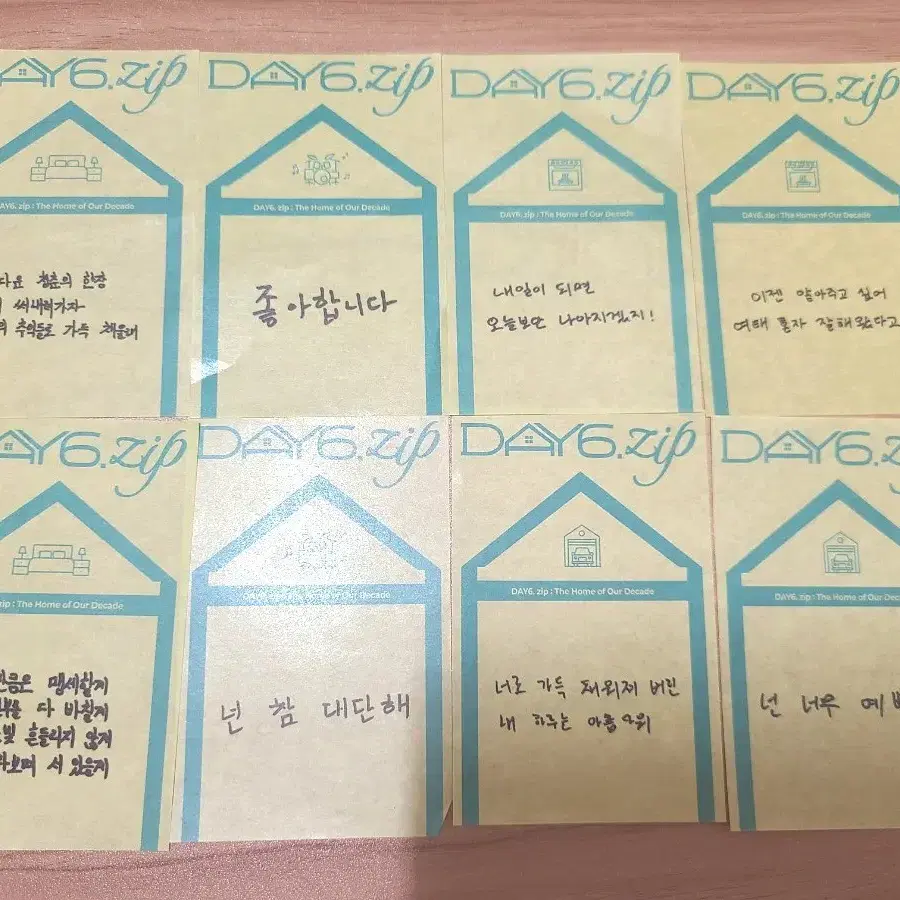 DAY6.zip
DAY6.zip
DAY6.zip
DAY6.zip
DAY6. zip : The Home of Our Decade
DAY6. zip : The Home of Our Decade
DAY6. zip : The Home of Our Decade
DAY6. zip : The Home of Our Decade
청춘의 한장
써내려가자
추억들로 가득 채울래
좋아합니다
내일이 되면
오늘보단 나아지겠지!
이젠 알아주고 싶어
여태 혼자 잘해왔다고
DAY6.zip
DAY6.zip
DAY6.zip
DAY6.z
zip : The Home of Our Decade
DAY6. zip : The Home of Our Decade
DAY6. zip : The Home of Our Decade
DAY6. zip : The Home of Our Decade
맹세할게
다 바칠게
흔들리지 않게
서 있을게
넌 참 대단해
너로 가득 채워져 버린
내 하루는 아름다워
넌 너무 예